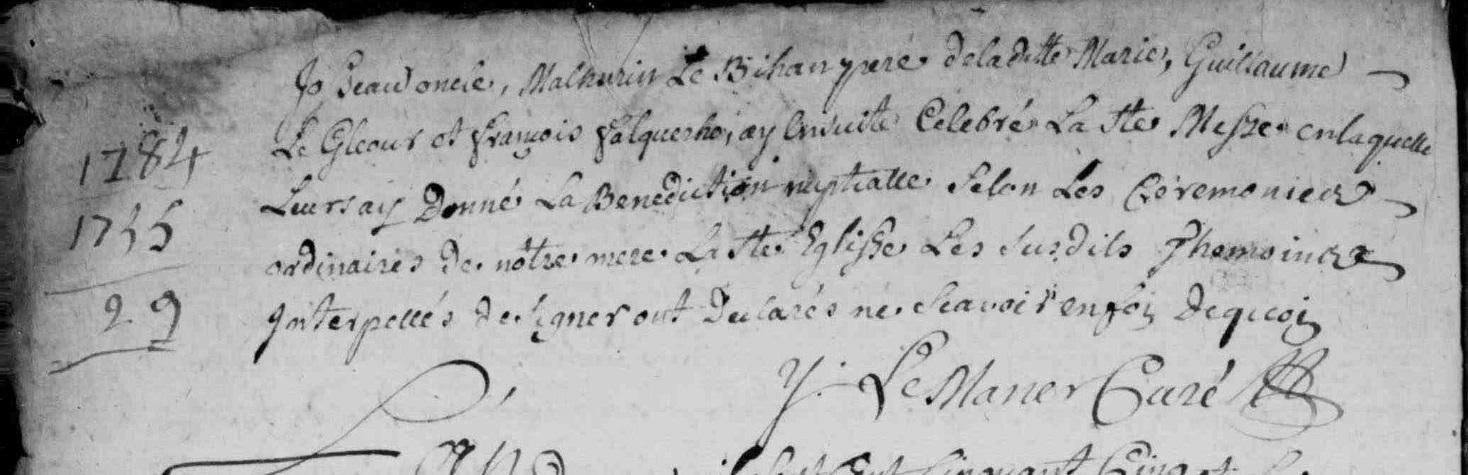 Jo Beau oncle, Mathurin Le Bihan pere de laditte Marie, Guillaume
Le Gleour et françois falquerho, ay Ensuite Celebré La Ste Messe en laquelle
Leurs ay Donné La Benediction nuptialle Selon Les Céremonies
ordinaires de nôtre mere La Ste Eglisse Les Susdits Themoins
Interpellés de Signer ont Declarés ne Scavoir en foy Dequoy
Y. Le Maner Curé
1784
1755
29